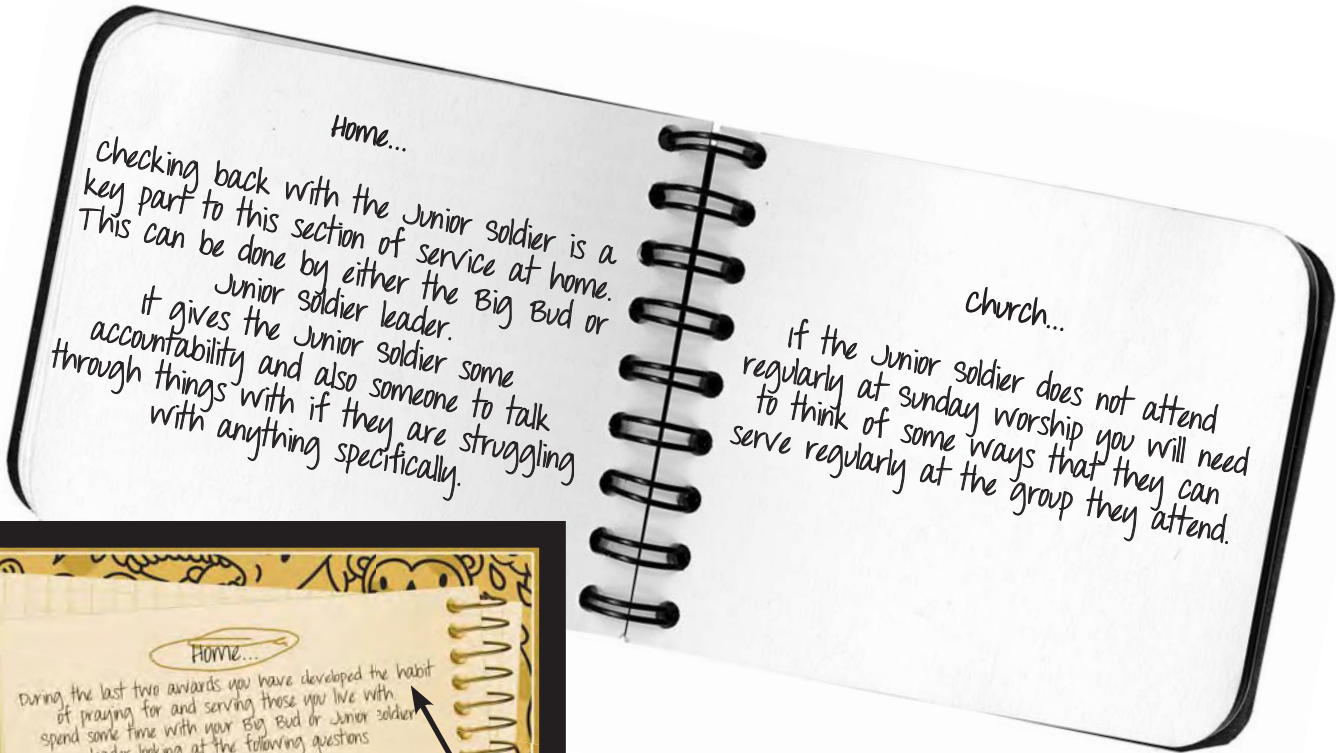 Home...
Checking back with the Junior Soldier is a
key part to this section of service at home.
This can be done by either the Big Bud or
Junior Soldier leader.
It gives the Junior Soldier some
accountability and also someone to talk
through things with if they are struggling
with anything specifically.
Church...
If the Junior Soldier does not attend
regularly at Sunday worship you will need
to think of some ways that they can
serve regularly at the group they attend.
Home...
During the last two awards you have developed the habit
of praying for and serving those you live with.
Spend some time with your Big Bud or Junior Soldier
leader looking at the following questions